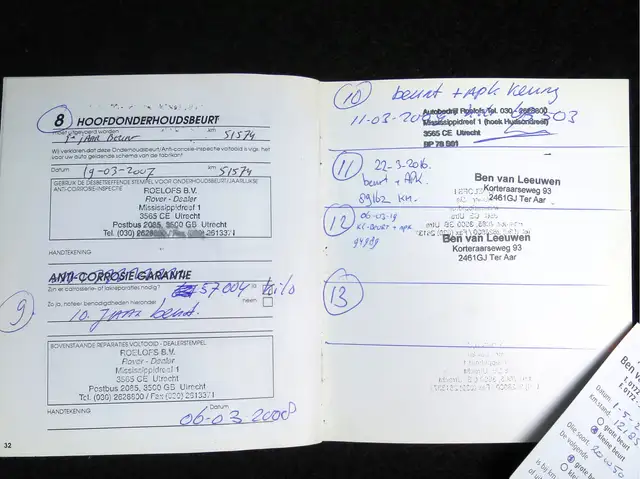 8 HOOFDONDERHOUDSBEURT
moet uitgevoerd worden km
Jaar Beurt 51574
Wij verklaren dat deze Onderhoudsbeurt/Anti-corrosie-inspectie voltooid is vlgs. het
voor uw auto geldende schema van de fabrikant
Datum 19-03-2007 km 51574
GEBRUIK DE DESBETREFFENDE STEMPEL VOOR ONDERHOUDSBEURT/JAARLIJKSE
ANTI-CORROSIE-INSPECTIE
ROELOFS B.V.
Rover - Dealer
Mississippidreef 1
3565 CE Utrecht
Postbus 2085, 3500 GB Utrecht
Tel. (030) 2628800 / Fax (030) 2613371
HANDTEKENING
ANTI-CORROSIE GARANTIE
Zijn er carrosserie- of lakreparaties nodig? 57004 ja
Zo ja, noteer benodigdheden hieronder neen
9 10. Jaar beurt.
BOVENSTAANDE REPARATIES VOLTOOID - DEALERSTEMPEL
ROELOFS B.V.
Rover - Dealer
Mississippidreef 1
3565 CE Utrecht
Postbus 2085, 3500 GB Utrecht
Tel. (030) 2628800 / Fax (030) 2613371
HANDTEKENING Datum
06-03 2008
32
10 beurt + APK Keuring
11-03-2009
Autobedrijf Roelofs/Tel. 030 - 2628800
Mississippidreef 1 (hoek Hudsondreef)
3565 CE Utrecht
11 22-3-2016.
beurt + APK.
89162 km.
Ben van Leeuwen
Korteraarseweg 93
2461GJ Ter Aar
12 06-03-19
Kl-Beurt + apk
94989
Ben van Leeuwen
Korteraarseweg 93
2461GJ Ter Aar
13
Ben va
Datum: 1-5-2
Km stand:
grote beurt
kleine beurt
Olie soort: 20W50
De volgende
grote beurt